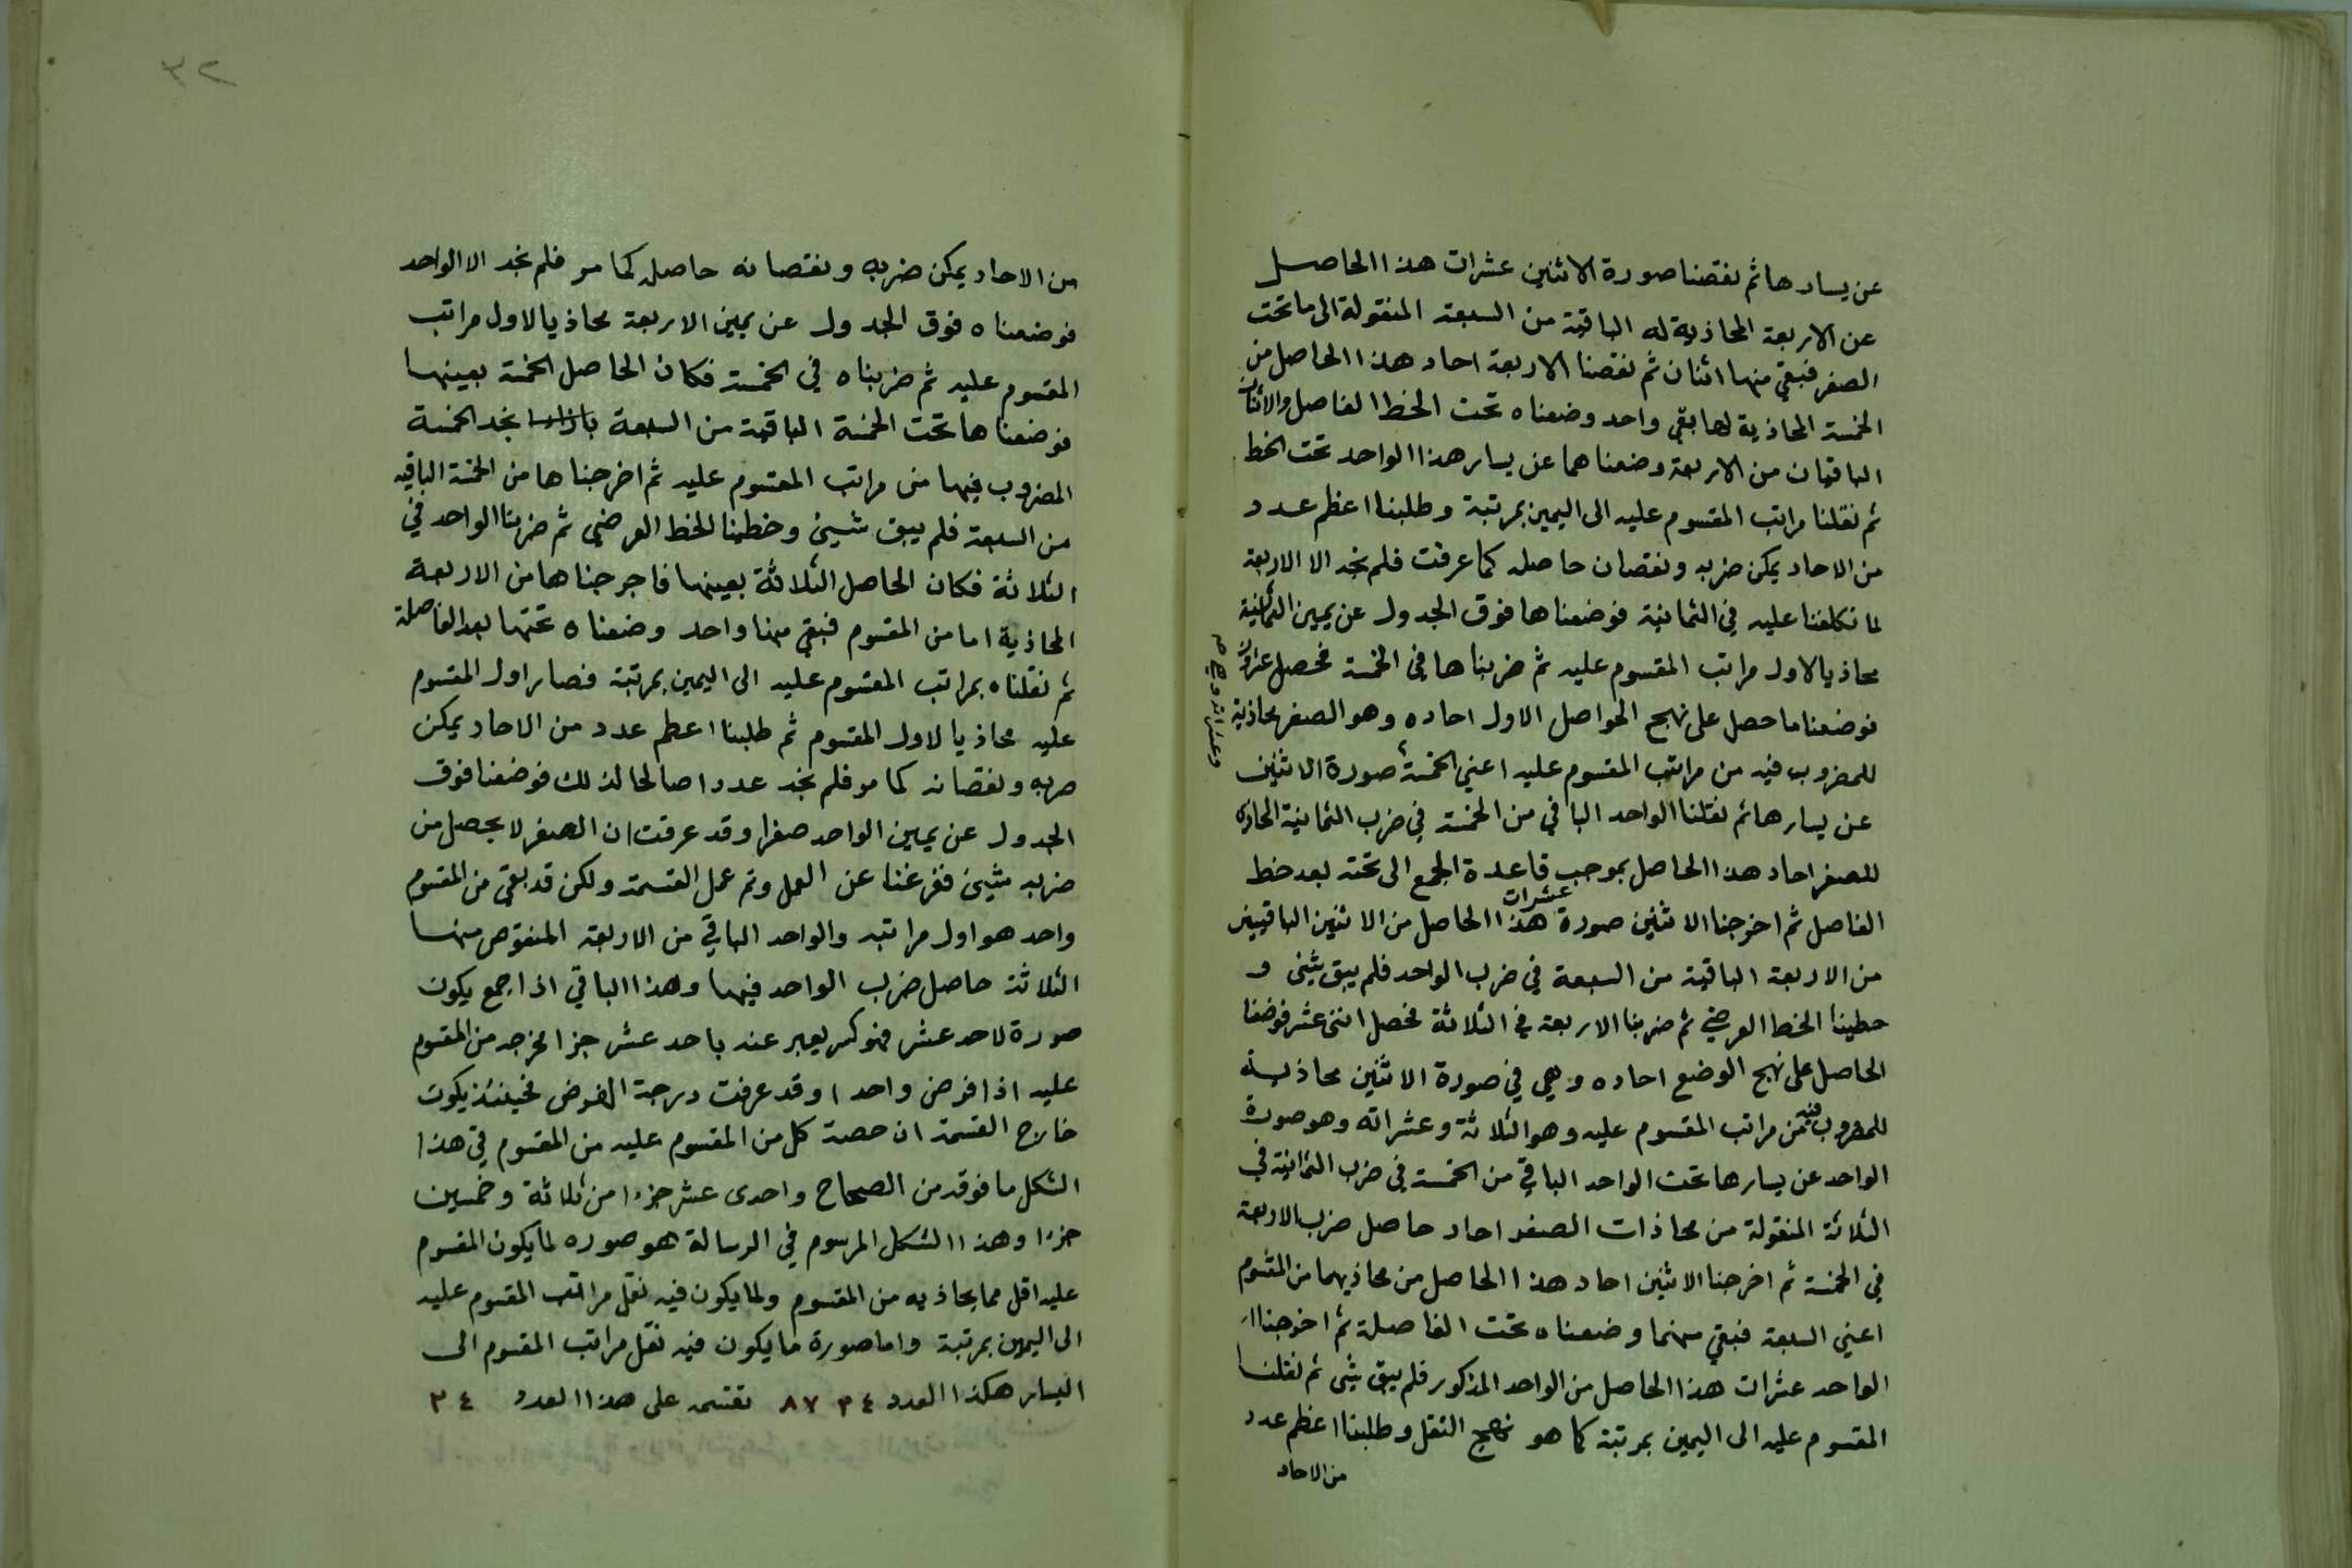 عن يسارها ثم نقصنا صورة الاثنين عشرات هذا الحاصل
عن الاربعة المحاذية له الباقية من السبعة المنقولة الى ما تحت
الصفر فبقي منها اثنان ثم نقصنا الاربعة احاد هذا الحاصل من
الخمسة المحاذية لها بقي واحد وضعناه تحت الخط الفاصل والاثنان
الباقيان من الاربعة وضعناهما عن يسار هذا الواحد تحت الخط
ثم نقلنا مراتب المقسوم عليه الى اليمين بمرتبة وطلبنا اعظم عدد
من الاحاد يمكن ضربه ونقصان حاصله كما عرفت فلم نجد الا الاربعة
لما تكلفنا عليه في الثمانية فوضعناها فوق الجدول عن يمين الثمانية
محاذيا لاول مراتب المقسوم عليه ثم ضربناها في الخمسة فحصل عشرون
فوضعنا ما حصل على نهج الحواصل الاول احاده وهو الصفر محاذية
للمضروب فيه من مراتب المقسوم عليه اعني الخمسة صورة الاثنين
وعشراته وهي
عن يسارها ثم نقلنا الواحد الباقي من الخمسة في ضرب الثمانية المحاذي
للصفر احاد هذا الحاصل بموجب قاعدة الجمع الى تحته بعد خط
الفاصل ثم اخرجنا الاثنين صورة عشرات هذا الحاصل من الاثنين الباقيين
من الاربعة الباقية من السبعة في ضرب الواحد فلم يبق شيئ و
خطينا الخط العرضي ثم ضربنا الاربعة في الثلاثة فحصل اثنى عشر فوضعنا
الحاصل على نهج الوضع احاده وهي في صورة الاثنين محاذية
للمضروب فيه من مراتب المقسوم عليه وهو الثلاثة وعشراته وهو صورة
الواحد عن يسارها تحت الواحد الباقي من الخمسة في ضرب الثمانية في
الثلاثة المنقولة من محاذات الصفر احاد حاصل ضرب الاربعة
في الخمسة ثم اخرجنا الاثنين احاد هذا الحاصل من محاذيهما من المقسوم
اعني السبعة فبقي منهما وضعناه تحت الفاصلة ثم اخرجنا
الواحد عشرات هذا الحاصل من الواحد المذكور فلم يبق شئ ثم نقلنا
المقسوم عليه الى اليمين بمرتبة كما هو نهج النقل وطلبنا اعظم عدد
من الاحاد
٣٢
من الاحاد يمكن ضربه ونقصانه حاصله كما مر فلم نجد الا الواحد
فوضعناه فوق الجدول عن يمين الاربعة محاذيا لاول مراتب
المقسوم عليه ثم ضربناه في الخمسة فكان الحاصل الخمسة بعينها
فوضعناها تحت الخمسة الباقية من السبعة نجد الخمسة
المضروب فيها من مراتب المقسوم عليه ثم اخرجناها من الخمسة الباقيه
من السبعة فلم يبق شيئ وخطينا الخط العرضي ثم ضربنا الواحد في
الثلاثة فكان الحاصل الثلاثة بعينها فاخرجناها من الاربعة
المحاذية اما من المقسوم فبقي منها واحد وضعناه تحتها بعد الفاصلة
ثم نقلناه بمراتب المقسوم عليه الى اليمين بمرتبة فصار اول المقسوم
عليه محاذيا لاول المقسوم ثم طلبنا اعظم عدد من الاحاد يمكن
ضربه ونقصانه كما مر فلم نجد عددا صالحا لذلك فوضعنا فوق
الجدول عن يمين الواحد صفرا وقد عرفت ان الصفر لا يحصل من
ضربه شيئ ففرغنا عن العمل وتم عمل القسمة ولكن قد بقي من المقسوم
واحد هو اول مراتبه والواحد الباقي من الاربعة المنقوص منها
الثلاثة حاصل ضرب الواحد فيها وهذا الباقي اذا جمع يكون
صورة لاحد عشر فهو كسر يعبر عنه باحد عشر جزا مخرجه من المقسوم
عليه اذا فرض واحدا وقد عرفت درجة الفرض فحينئذ يكون
خارج القسمة ان حصة كل من المقسوم عليه من المقسوم في هذا
الشكل ما فوقه من الصحاح واحدى عشر جزءا من ثلاثة وخمسين
جزءا وهذا الشكل المرسوم في الرسالة هو صوره لما يكون المقسوم
عليه اقل مما يحاذيه من المقسوم ولما يكون فيه نقل مراتب المقسوم عليه
الى اليمين بمرتبة واما صورة ما يكون فيه نقل مراتب المقسوم الى
اليسار هكذا العدد ٨٧٣٤ نقسمه على هذا العدد ٣٤